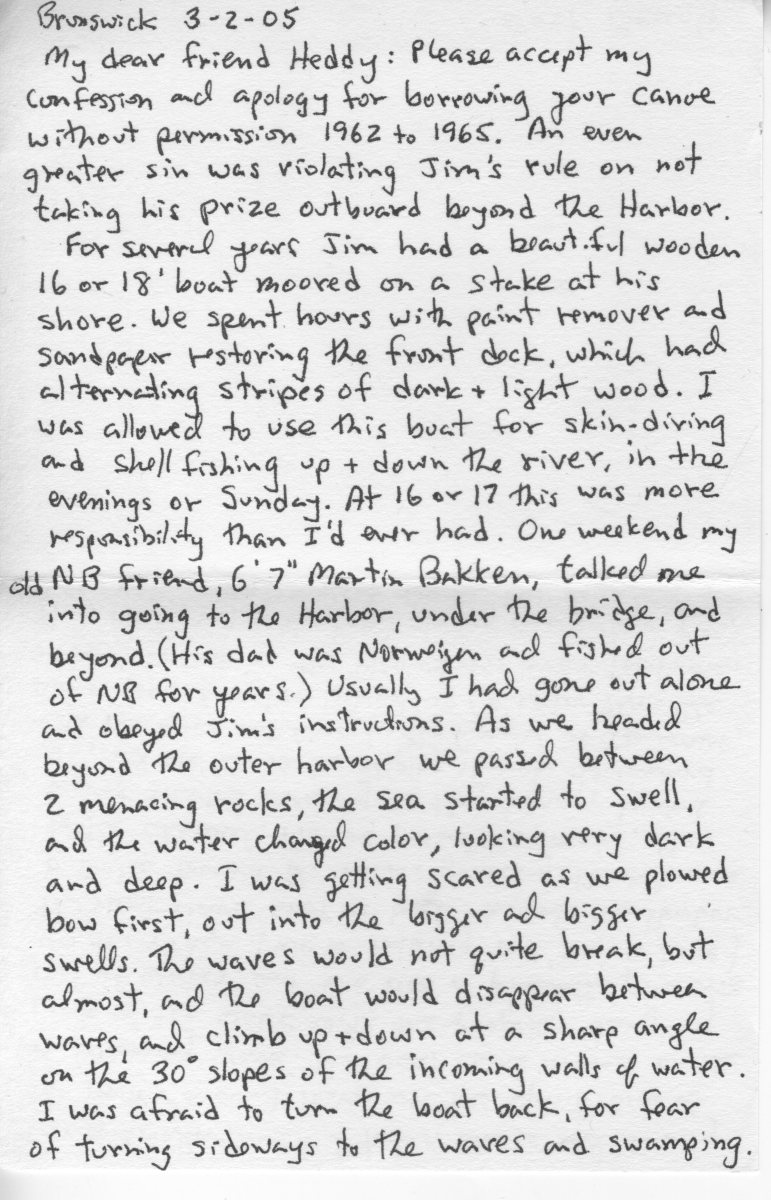 Brunswick 3-2-05
My dear friend Heddy: Please accept my
confession and apology for borrowing your canoe
without permission 1962 to 1965. An even
greater sin was violating Jim's rule on not
taking his prize outboard beyond the Harbor.
For several years Jim had a beautiful wooden
16 or 18' boat moored on a stake at his
shore. We spent hours with paint remover and
sandpaper restoring the front deck, which had
alternating stripes of dark + light wood. I
was allowed to use this boat for skin-diving
and shell fishing up + down the river, in the
evenings or Sunday. At 16 or 17 this was more
responsibility than I'd ever had. One weekend my
old NB friend, 6'7" Martin Bakken, talked me
into going to the Harbor, under the bridge, and
beyond. (His dad was Norweigen and fished out
of NB for years.) Usually I had gone out alone
and obeyed Jim's instructions. As we headed
beyond the outer harbor we passed between
2 menacing rocks, the sea started to swell,
and the water changed color, looking very dark
and deep. I was getting scared as we plowed
bow first, out into the bigger and bigger
swells. The waves would not quite break, but
almost, and the boat would disappear between
waves, and climb up + down at a sharp angle
on the 30° slopes of the incoming walls of water.
I was afraid to turn the boat back, for fear
of turning sideways to the waves and swamping.